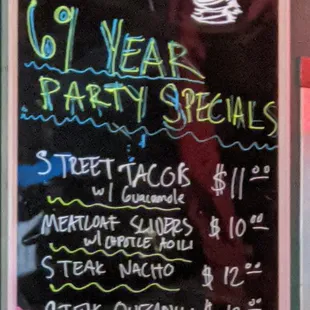 69 YEAR
PARTY SPECIALS
STREET TACOS $11.00
w/ Guacamole
MEATLOAF SLIDERS $10.00
w/ CHIPOTLE AOILI
STEAK NACHO $12.00